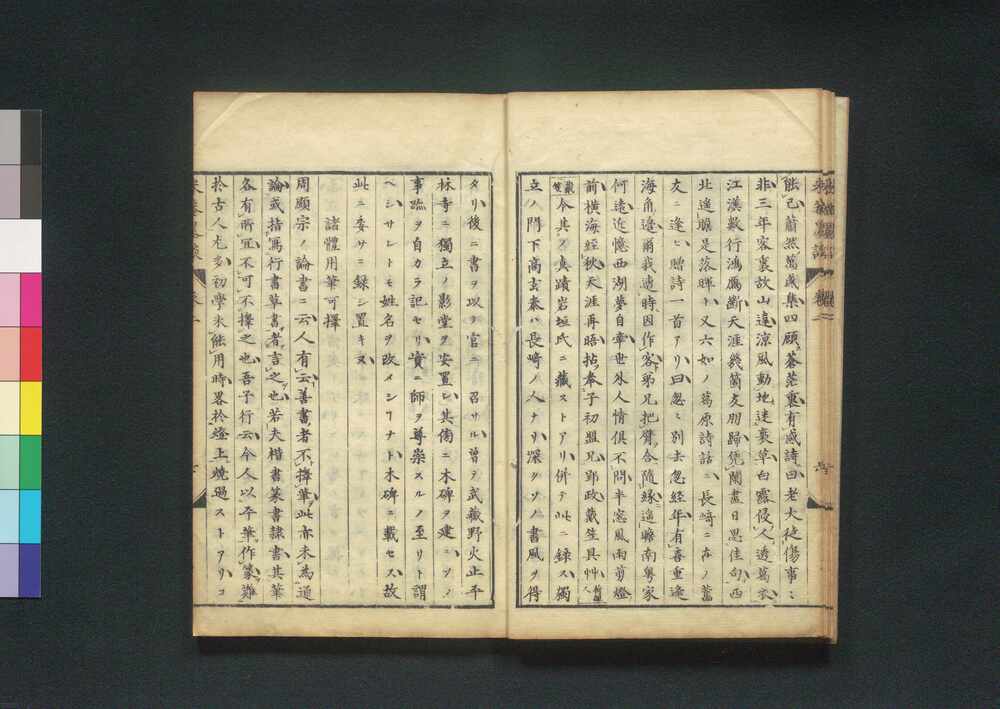 能已蕭然萬感集四顧蒼茫裏有感詩曰老大徒傷事ミ
非三年客裏故山違涼風動地迷衰草白露侵人透葛衣
江漢數行鴻鴈斷天涯幾箇友朋歸凭闌盡日思佳句西
北遙瞻是落暉ト又六如ノ葛原詩話ニ長崎ニ在ノ舊
友ニ逢ヒ贈詩一首アリ曰忽ミ別去忽経年有喜重逢
海角邊爾我適時因作客弟兄把臂合隨縁遙瞻南粤家
何遠近憶西湖夢自牽世外人情倶不問半窓風雨剪燈
前橫海経秋天涯再晤拈奉子初盟兄郢政戴笠具艸
戴笠今其ノ真蹟岩垣氏ニ藏ストアリ併テ此ニ録ス獨
立ノ門下高玄泰ハ長崎ノ人ナリ深クソノ書風ヲ得
タリ後ニ書ヲ以テ官ニ召サル曽テ武藏野火止平
林寺ニ獨立ノ影堂ヲ安置シ其傍ニ木碑ヲ建ニソノ
事跡ヲ自カラ記セリ實ニ師ヲ尊崇スルノ至リト謂
ベシサレトモ姓名ヲ改メシ1ナト木碑ニ載セス故
此ニ委サニ録シ置キヌ
諸體用筆可擇
周顯宗ノ論書ニ云人有云善書者不擇筆此亦未為通
論或指寫行書草書者言之也若夫楷書篆書隷書其筆
各有所宜不可不擇之也吾子行云今人以平筆作篆難
於古人尤多初學未能用時畧於燈上燒過ストアリコ